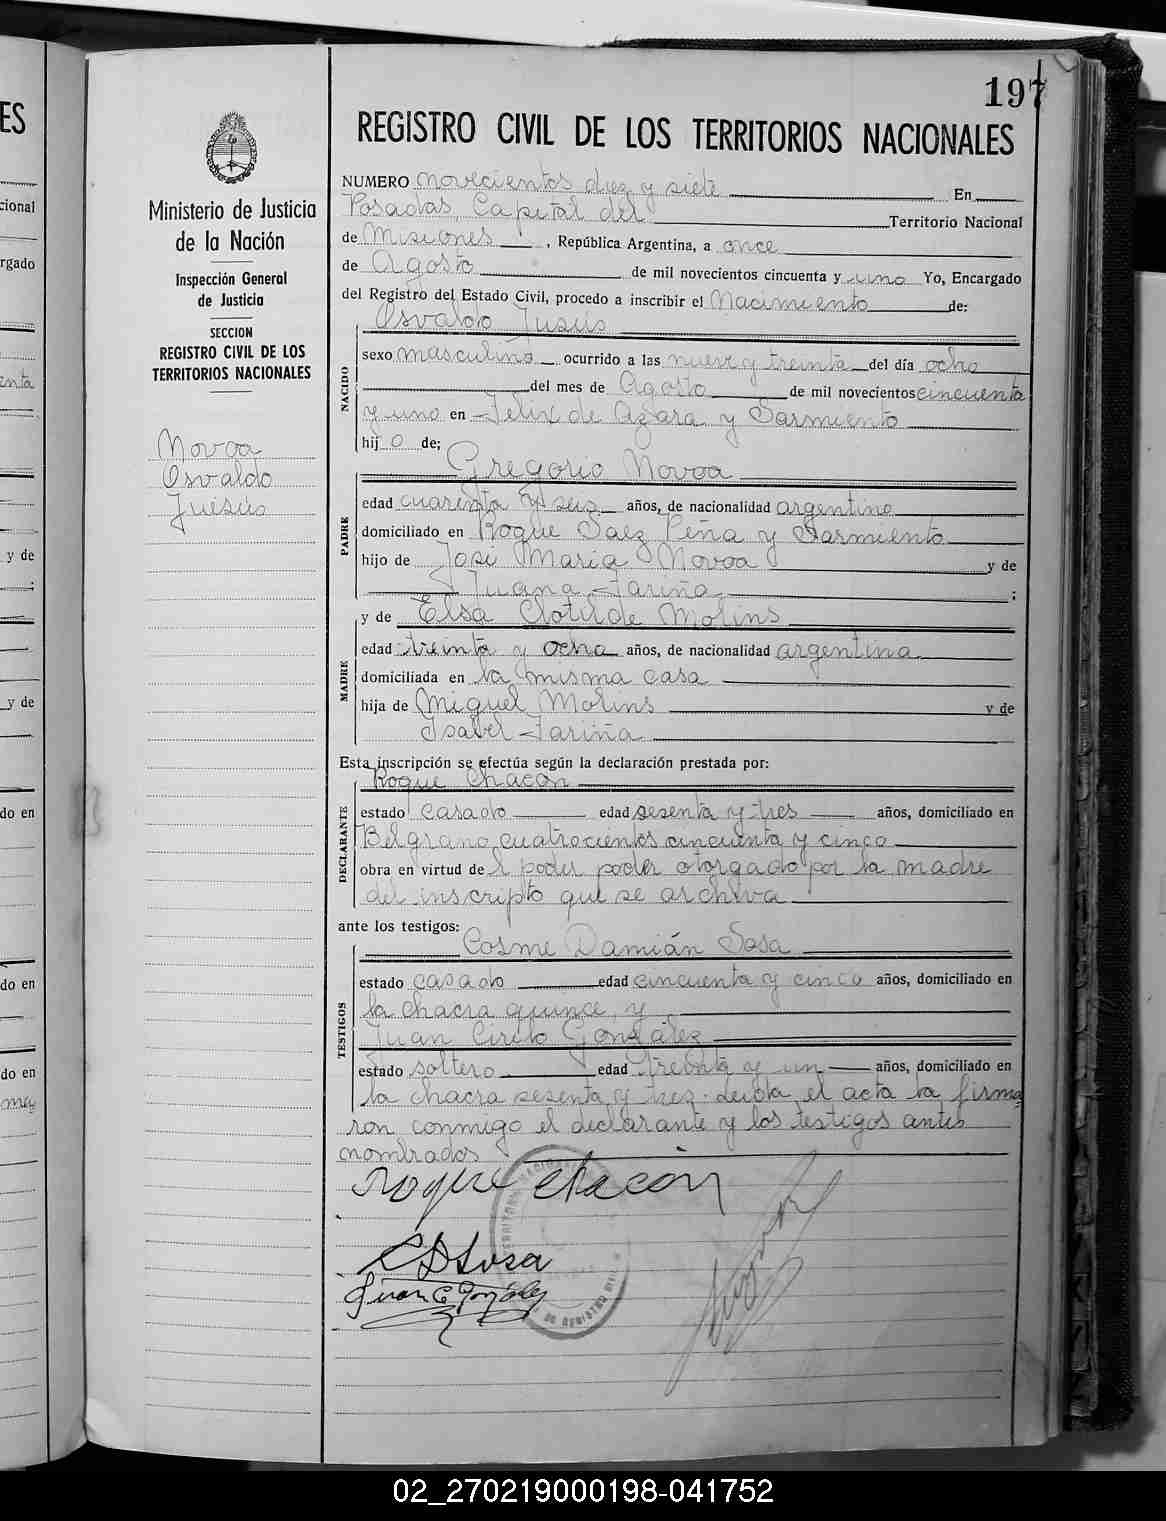 197
REGISTRO CIVIL DE LOS TERRITORIOS NACIONALES
Ministerio de Justicia
de la Nación
Inspección General
de Justicia
SECCION
REGISTRO CIVIL DE LOS
TERRITORIOS NACIONALES
Novoa
Osvaldo
Jusús
NUMERO novecientos diez y siete En
Posadas, Capital del Territorio Nacional
de Misiones, República Argentina, a once
de Agosto de mil novecientos cincuenta y uno Yo, Encargado
del Registro del Estado Civil, procedo a inscribir el Nacimiento de:
Osvaldo Jusús
NACIDO
sexo masculino ocurrido a las nueve y treinta del día ocho
del mes de Agosto de mil novecientos cincuenta
y uno en Felix de Azara y Sarmiento
hijo de;
Gregorio Novoa
PADRE
edad cuarenta y seis años, de nacionalidad argentino
domiciliado en Roque Saez Peña y Sarmiento
hijo de José Maria Novoa y de
Juana Fariña ;
y de Elsa Clotilde Molins
MADRE
edad treinta y ocho años, de nacionalidad argentina
domiciliada en la misma casa
hija de Miguel Molins y de
Isabel Fariña
Esta inscripción se efectúa según la declaración prestada por:
Roque Chacón
DECLARANTE
estado casado edad sesenta y tres años, domiciliado en
Belgrano cuatrocientos cincuenta y cinco
obra en virtud de l poder poder otorgado por la madre
del inscripto que se archiva
ante los testigos:
Cosme Damián Sosa
TESTIGOS
estado casado edad cincuenta y cinco años, domiciliado en
la chacra quince, y
Juan Cirilo González
estado soltero edad treinta y un años, domiciliado en
la chacra sesenta y tres. Leída el acta la firma
ron conmigo el declarante y los testigos antes
nombrados
Roque Chacón
C D Sosa
Juan C González
ES
cional
rgado
enta
y de
;
y de
do en
do en
do en
02_270219000198-041752